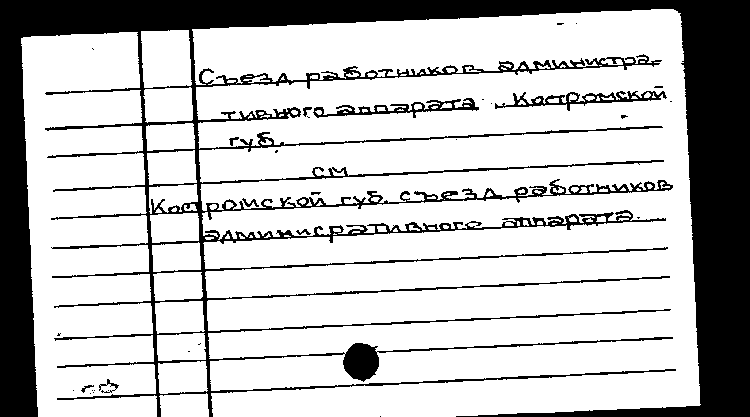 Съезд работников администра-
тивного аппарата, Костромской
губ.
см
Костромской губ. съезд работников
административного аппарата.